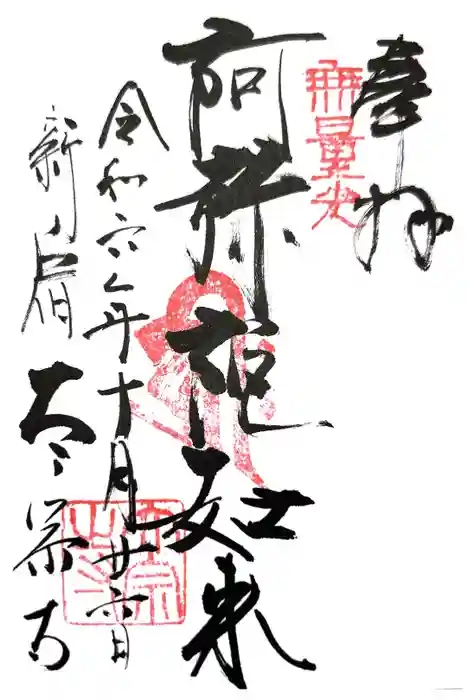 奉拝
無量光
阿弥陀如来
令和六年十月廿六日
新宿
太宗寺